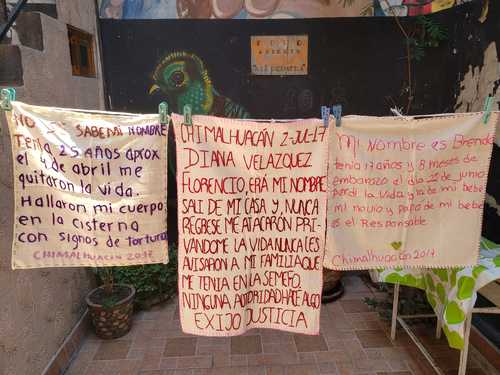 NO SE SABE MI NOMBRE
Tenía 25 AÑOS APROX
el 4 de abril me
quitaron la vida.
Hallaron mi cuerpo
en la cisterna
con signos de tortura
CHIMALHUACÁN 2017
CHIMALHUACÁN 2-JUL-17
DIANA VELAZQUEZ
FLORENCIO, ERA MI NOMBRE
SALI DE MI CASA Y NUNCA
REGRESE ME ATACARÓN PRI-
VANDOME LA VIDA NUNCA LES
AVISARON A MI FAMILIA QUE
ME TENIA EN LA SEMEFO.
NINGUNA AUTORIDAD HACE ALGO
EXIJO JUSTICIA
Mi Nombre es Brenda
tenía 17 años y 8 meses de
embarazo el día 25 de junio
perdí la Vida y la de mi bebe
mi novio y papa de mi bebe
es el Responsable
Chimalhuacán 2017